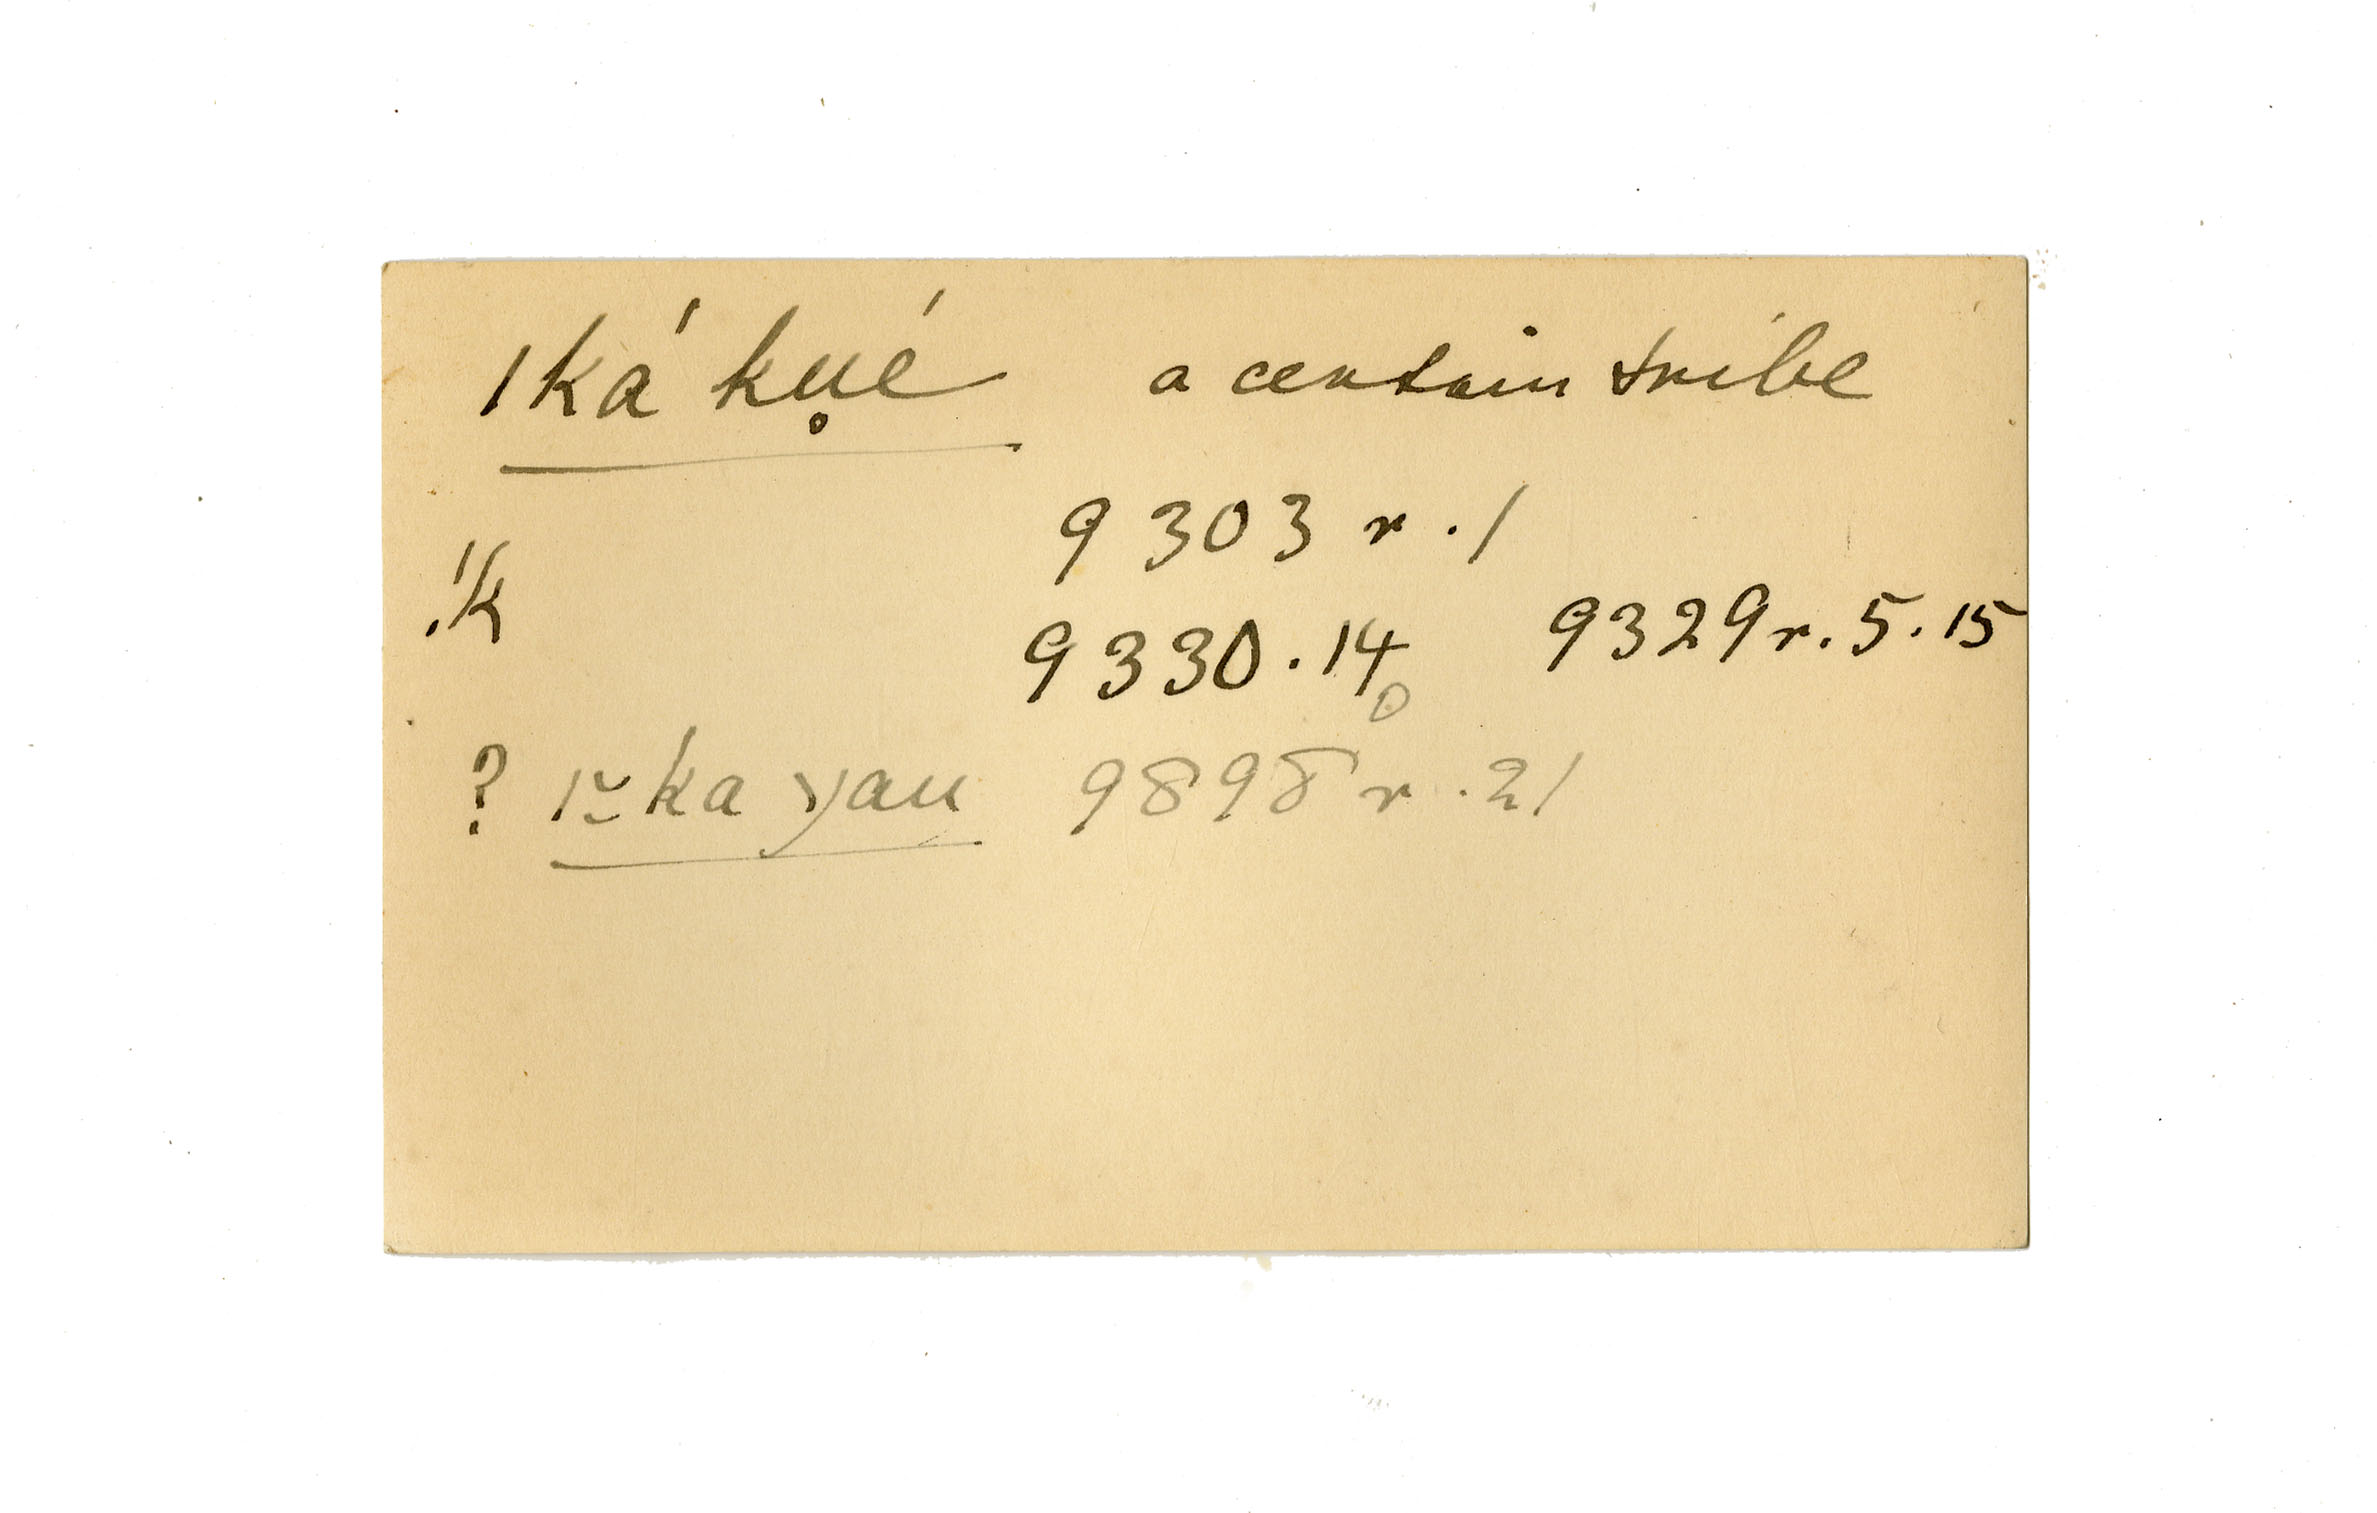 ıká ku̥é a certain tribe
9303 r. 1
!k
9330.14 9329 r. 5.15
? ı ̰ka yau 9898 r. 21